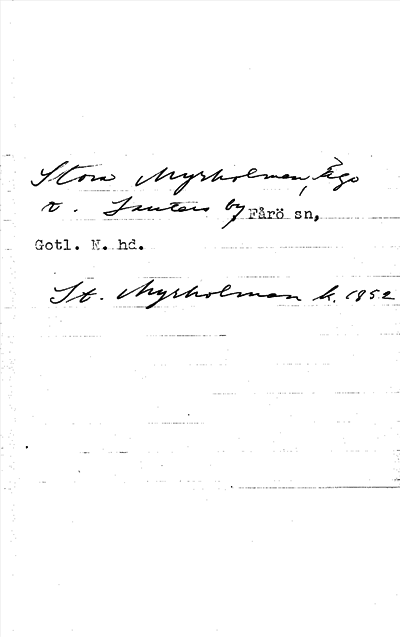 Stora Myrholmen, ägo
t. Lauters by Fårö sn,
Gotl. N. hd.
St. Myrholman k. 1852